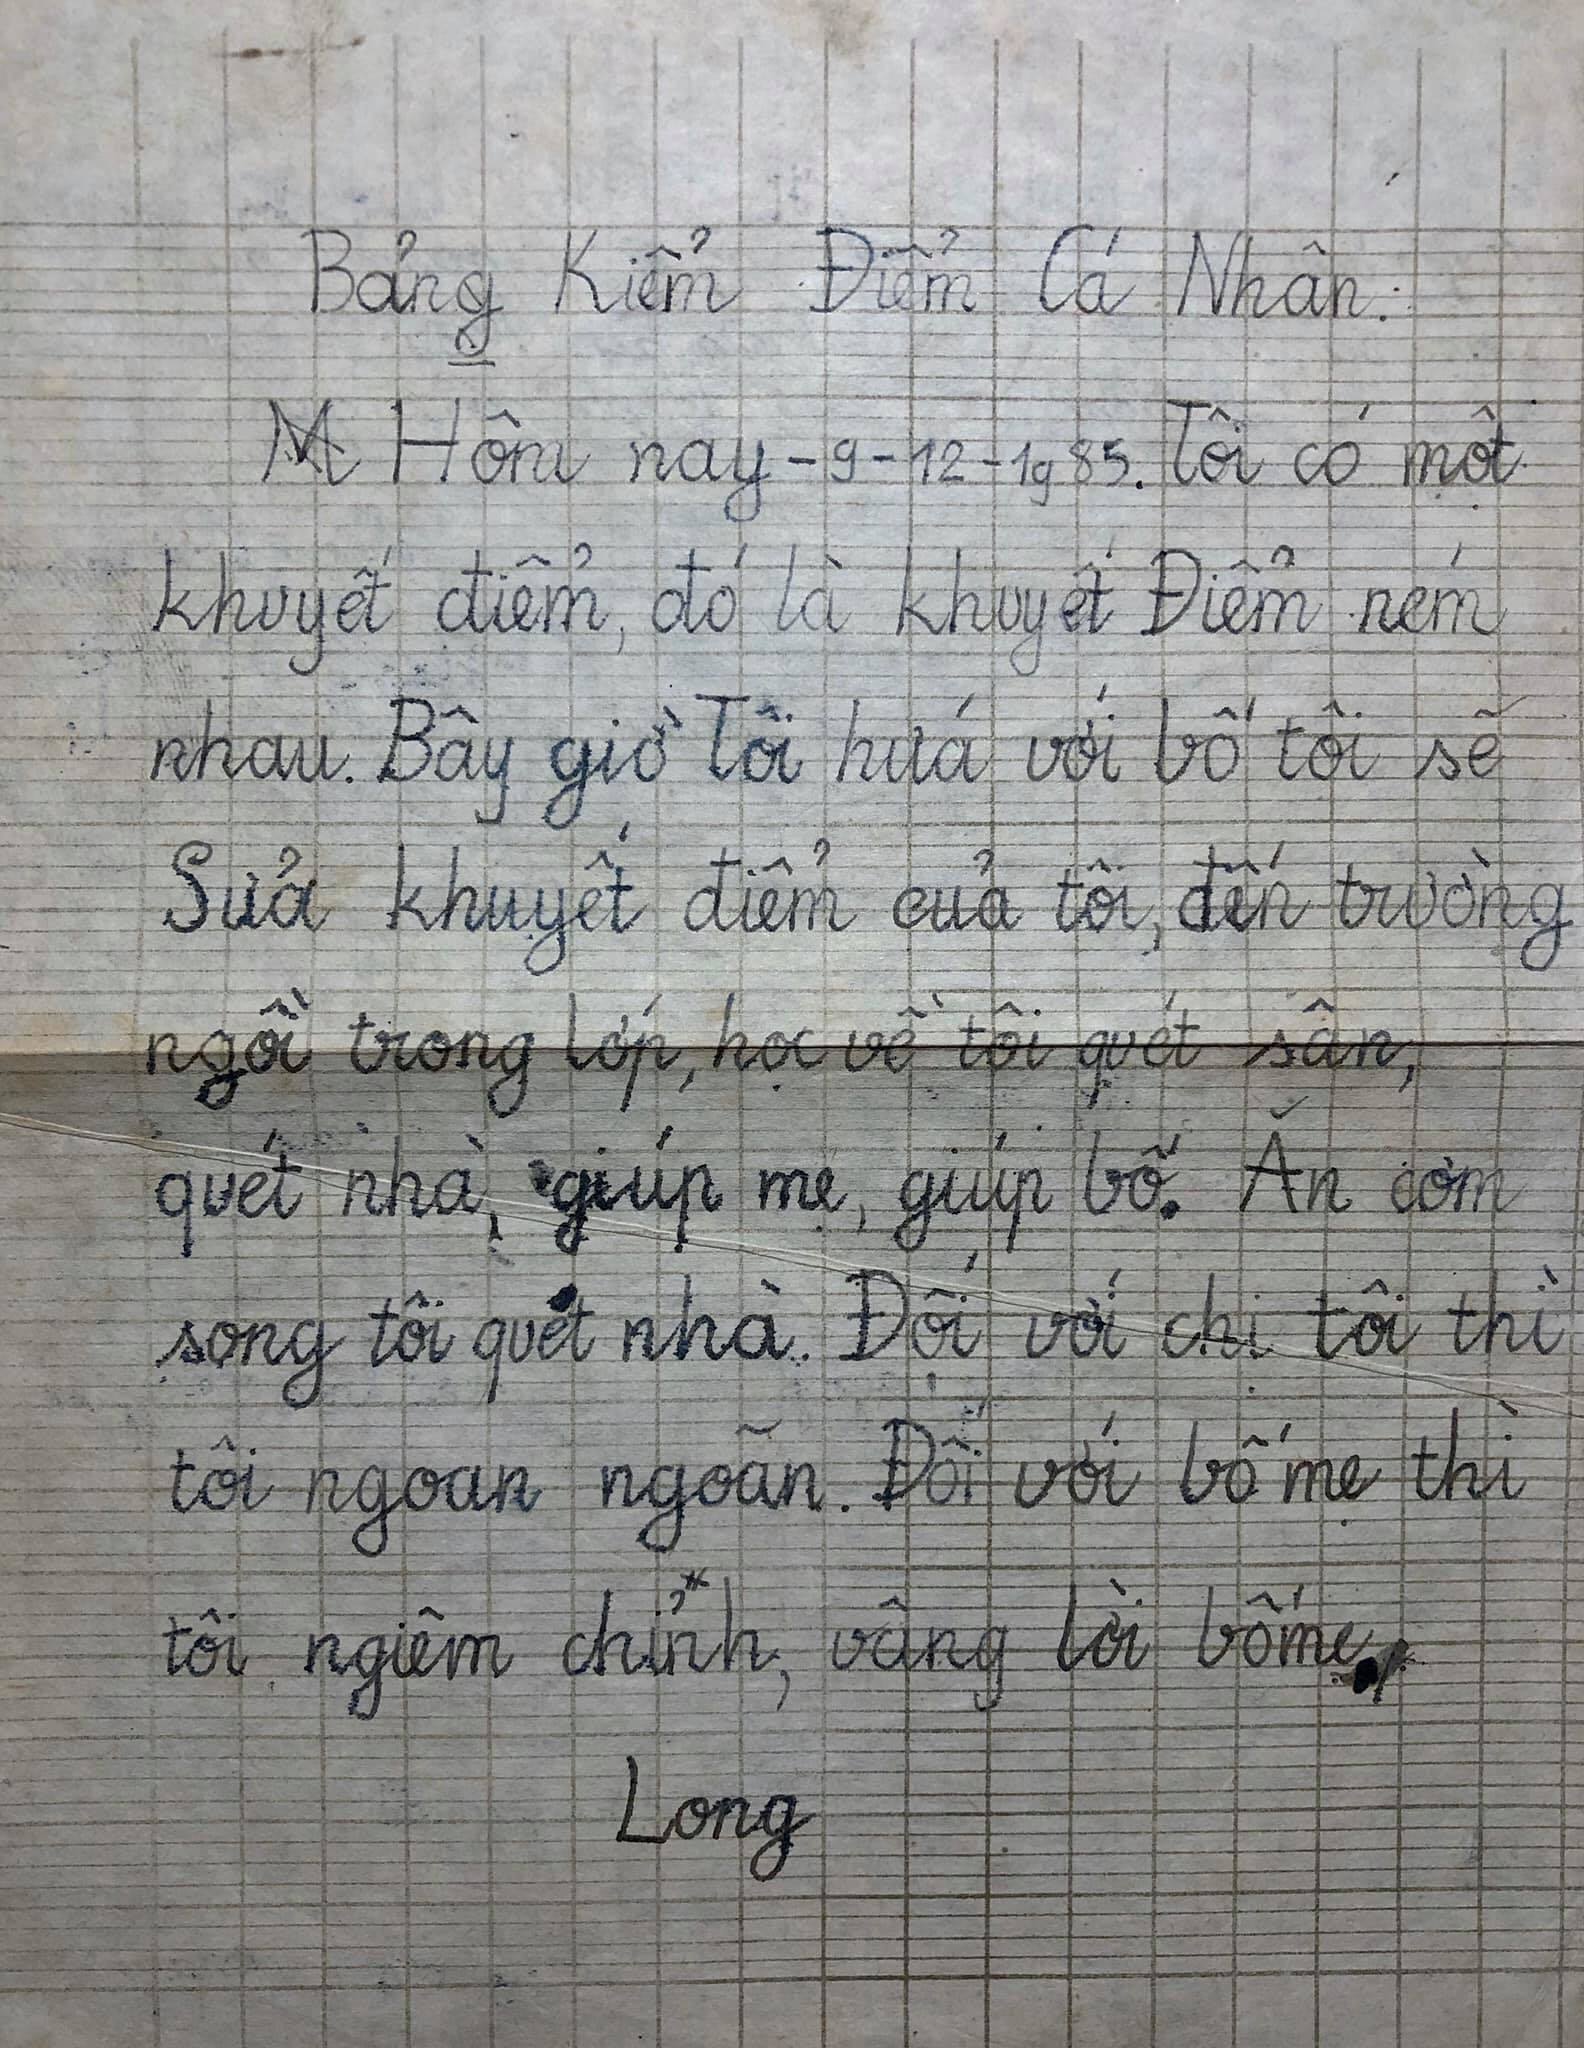 Bảng Kiểm Điểm Cá Nhân.
Hôm nay - 9 - 12 - 1985. Tôi có một
khuyết điểm, đó là khuyết Điểm ném
nhau. Bây giờ Tôi hứa với bố tôi sẽ
Sửa khuyết điểm của tôi, đến trường
ngồi trong lớp, học về tôi quét sân,
quét nhà, giúp mẹ, giúp bố. Ăn cơm
song tôi quét nhà. Đối với chị tôi thì
tôi ngoan ngoãn. Đối với bố mẹ thì
tôi ngiêm chỉnh, vâng lời bố mẹ,
Long